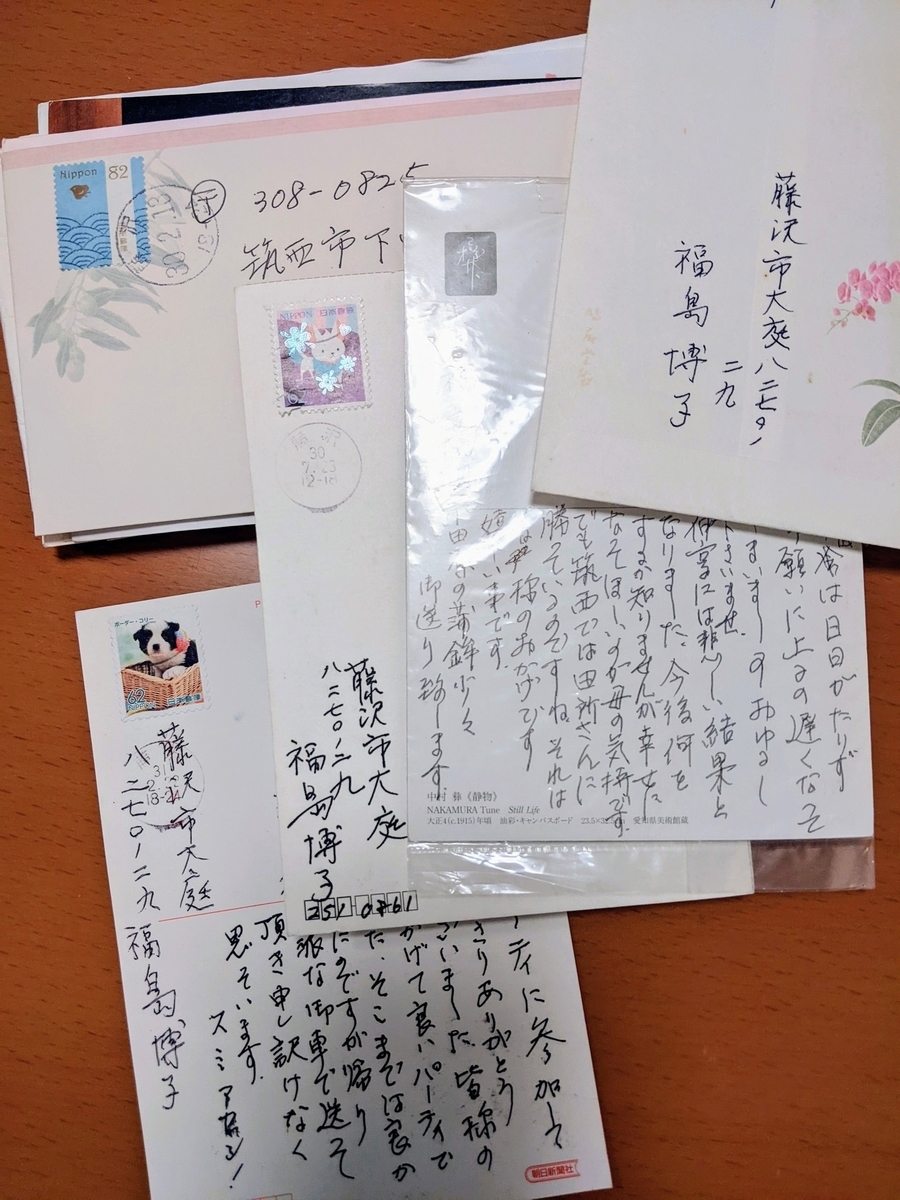 Nippon 82
30.2.13
12-18
308-0825
筑西市下
藤沢市大庭八二七〇ノ
二九
福島博子
NIPPON 日本郵便
62
30
7.23
12-18
藤沢市大庭
八二七〇ノ二九
福島博子
251 0861
は日日がたりず
願いに上るの遅くなって
まいましのおゆるし
下さいませ。
伸写には悲しい結果と
なりました。今後何を
するか知りませんが幸せに
なってほしいのが母の気持です。
でも筑西では田所さんに
勝っているのですね。それは
皆様のおかげです
嬉しい事です。
の蒲鉾少々
御送り致します
中村 彝《静物》
NAKAMURA Tune Still Life
大正4(c.1915)年頃 油彩・キャンバスボード 愛知県美術館蔵
ボーダー・コリー
62
日本郵便
藤沢市大庭
八二七〇ノ二九
福島博子
ティに参加して
ありがとう
いました。皆様の
かげて良いパーティで
た。そこまでは良か
にのですが帰り
派な御車で送って
頂き申し訳けなく
思っています。
スミマセン!
朝日新聞社